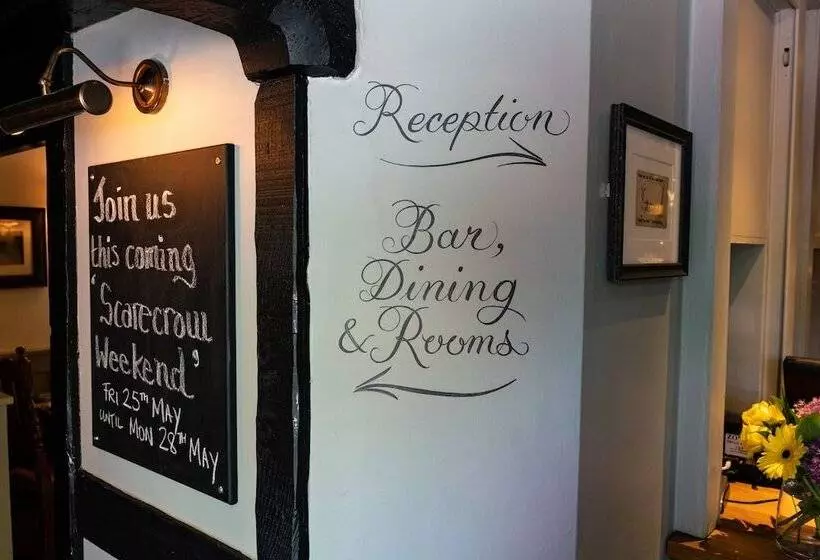 Join us
this coming
'Scarecrow
Weekend'
FRI 25TH MAY
UNTIL MON 28TH MAY
Reception
Bar,
Dining
& Rooms